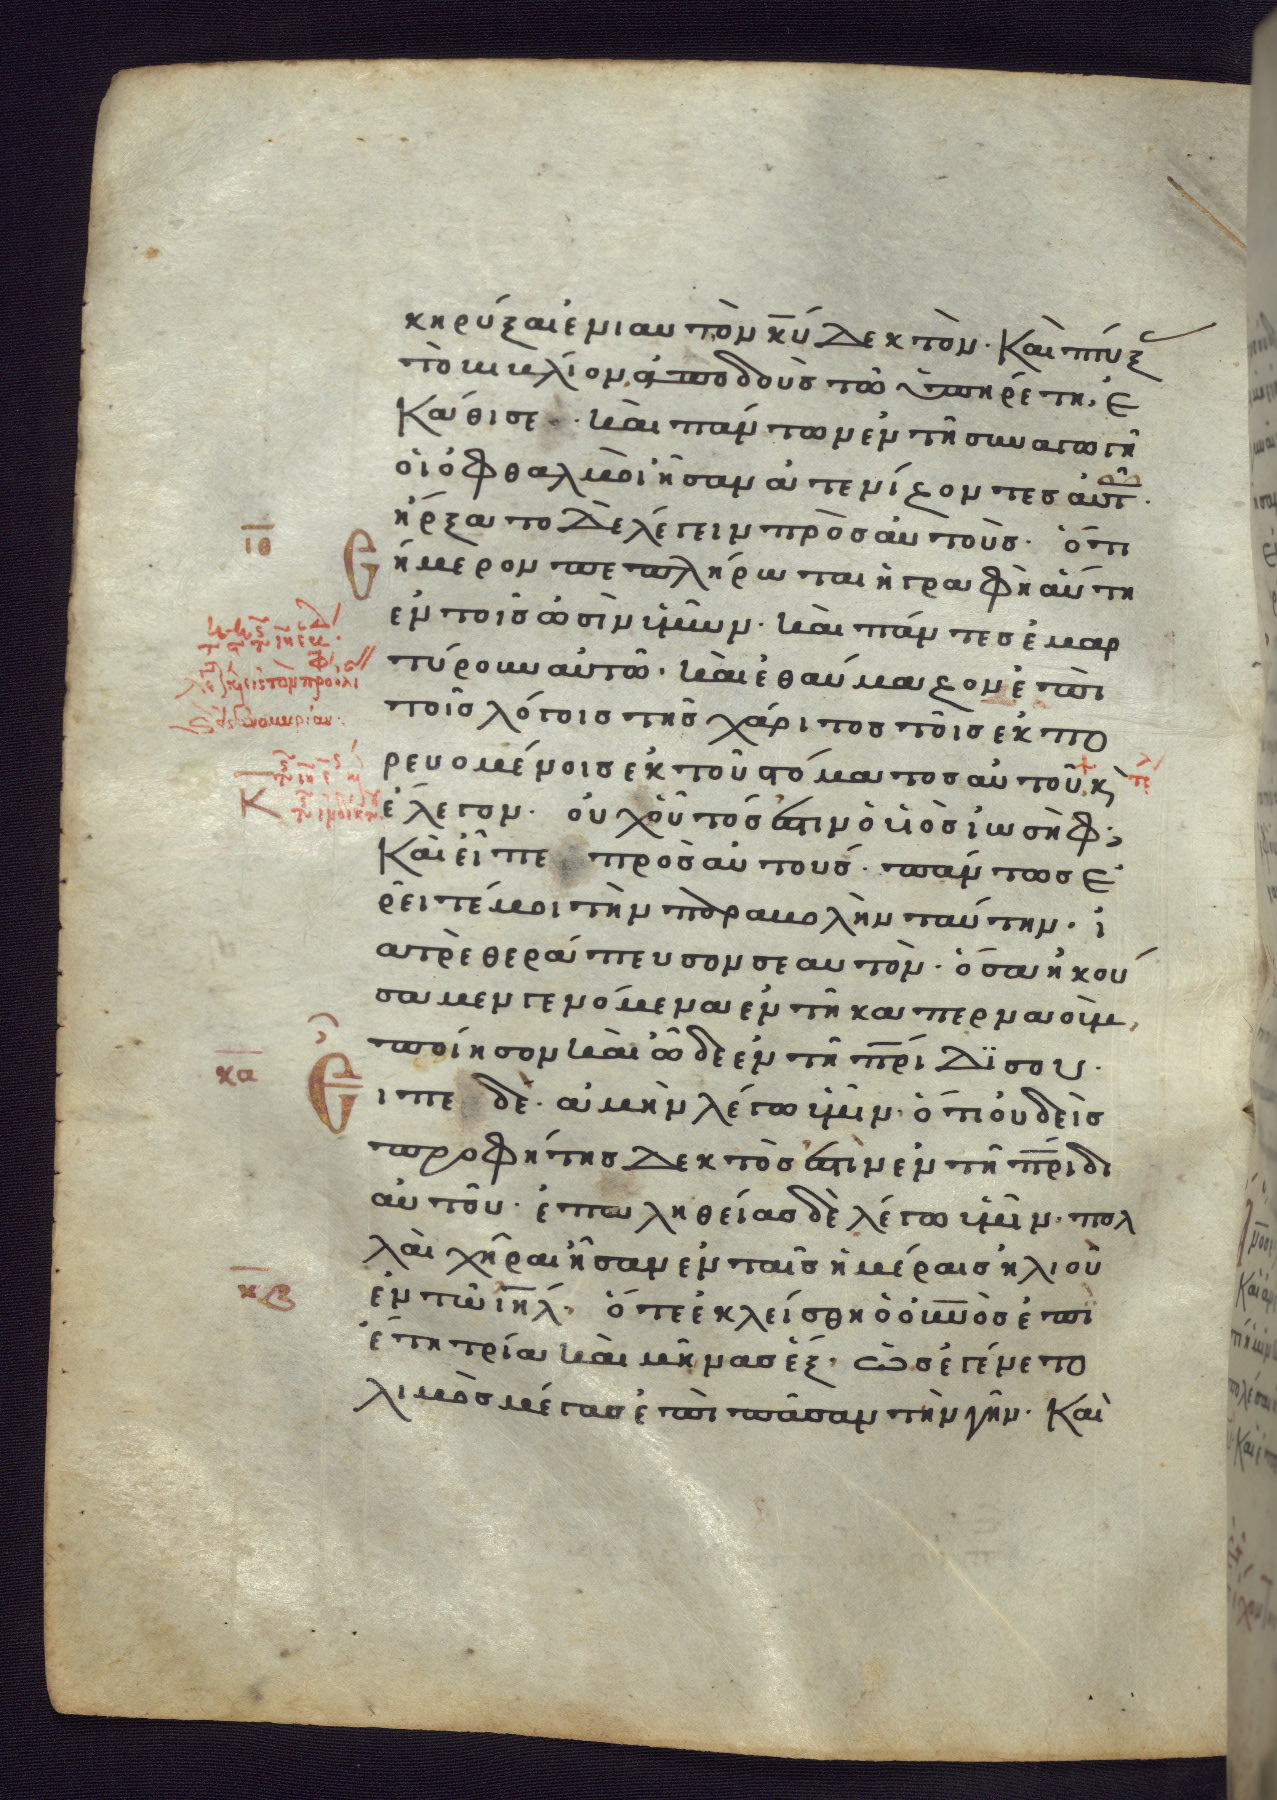 κηρύξαι ἐνιαυτὸν κ̅υ̅ δεκτὸν· Καὶ πτύξ
τὸ βιβλίον ἀποδοὺς τῶ ὑπηρέτη, ἐ
Κάθισε· καὶ πάντων ἐν τῆ συναγωγῆ
οἱ ὀφθαλμοὶ ἦσαν ἀτενίζοντες αὐτ·
ι̅θ̅ ἤρξατο δὲ λέγειν πρὸς αὐτοὺς· ὅτι
Cήμερον πεπλήρωται ἡ γραφὴ αὕτη
ἐν τοῖς ὠσὶν ὑμῶν· καὶ πάντες ἐμαρ
τύρουν αὐτῶ· καὶ ἐθαύμαζον ἐπὶ
τοῖς λόγοις τῆς χάριτος τοῖς ἐκπο
ρευομένοις ἐκ τοῦ στόματος αὐτοῦ, κ
ἔλεγον· οὐχ οὗτός ἐστιν ὁ υἱὸς ἰωσήφ;
Καὶ εἶπε πρὸς αὐτούς· πάντως ἐ
ρεῖτέ μοι τὴν παραβολὴν ταύτην· ἰ
ατρὲ θεράπευσον σεαυτὸν· ὅσα ἠκού
σαμεν γενόμενα ἐν τῆ καπερναοὺμ,
ποίησον καὶ ὧδε ἐν τῆ π̅ρ̅ί̅δι σου·
κ̅α̅ Εἶπε δὲ· ἀμὴν λέγω ὑμῖν· ὅτι οὐδεὶς
προφήτης δεκτὸς ἐστιν ἐν τῆ π̅ρ̅ί̅δι
αὐτοῦ· ἐπ ἀληθείας δὲ λέγω ὑμῖν· πολ
λαὶ χῆραι ἦσαν ἐν ταῖς ἡμέραις ἠλιοῦ
κ̅β̅ ἐν τῶ ι̅η̅λ̅· ὅτε ἐκλείσθη ὁ ο̅υ̅ν̅ὸς ἐπὶ
ἔτη τρία καὶ μῆνας ἓξ· ὡς ἐγένετο
λιμὸς μέγας ἐπὶ πᾶσαν τὴν γῆν· Καὶ